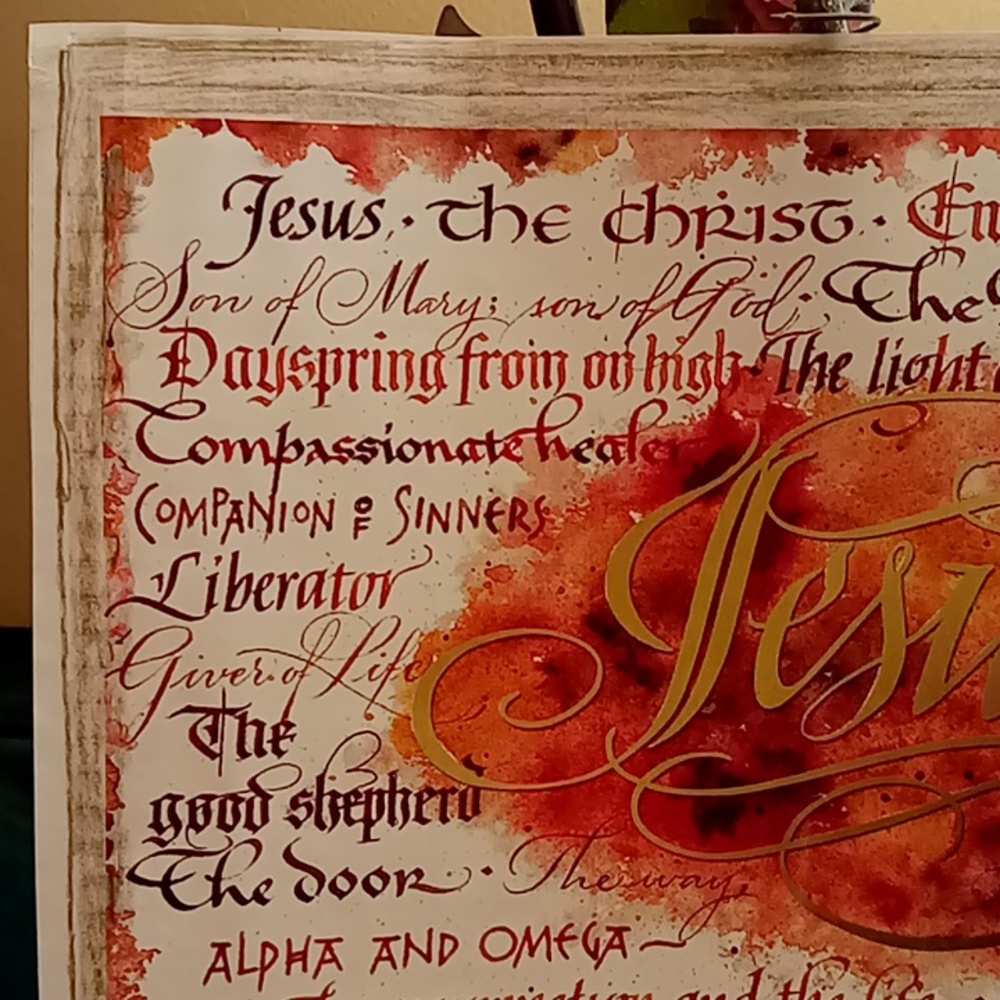 Jesus · The Christ ·
Son of Mary; son of God · The
Dayspring from on high · The light
Compassionate healer
COMPANION OF SINNERS
Liberator
Giver of Life
Jesu
The
good shepherd
The door · The way,
ALPHA AND OMEGA
and the